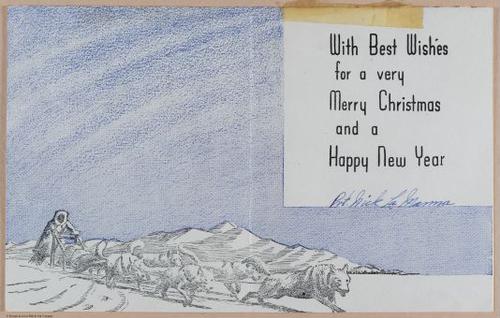 With Best Wishes
for a very
Merry Christmas
and a
Happy New Year
Pvt Nick La Manna